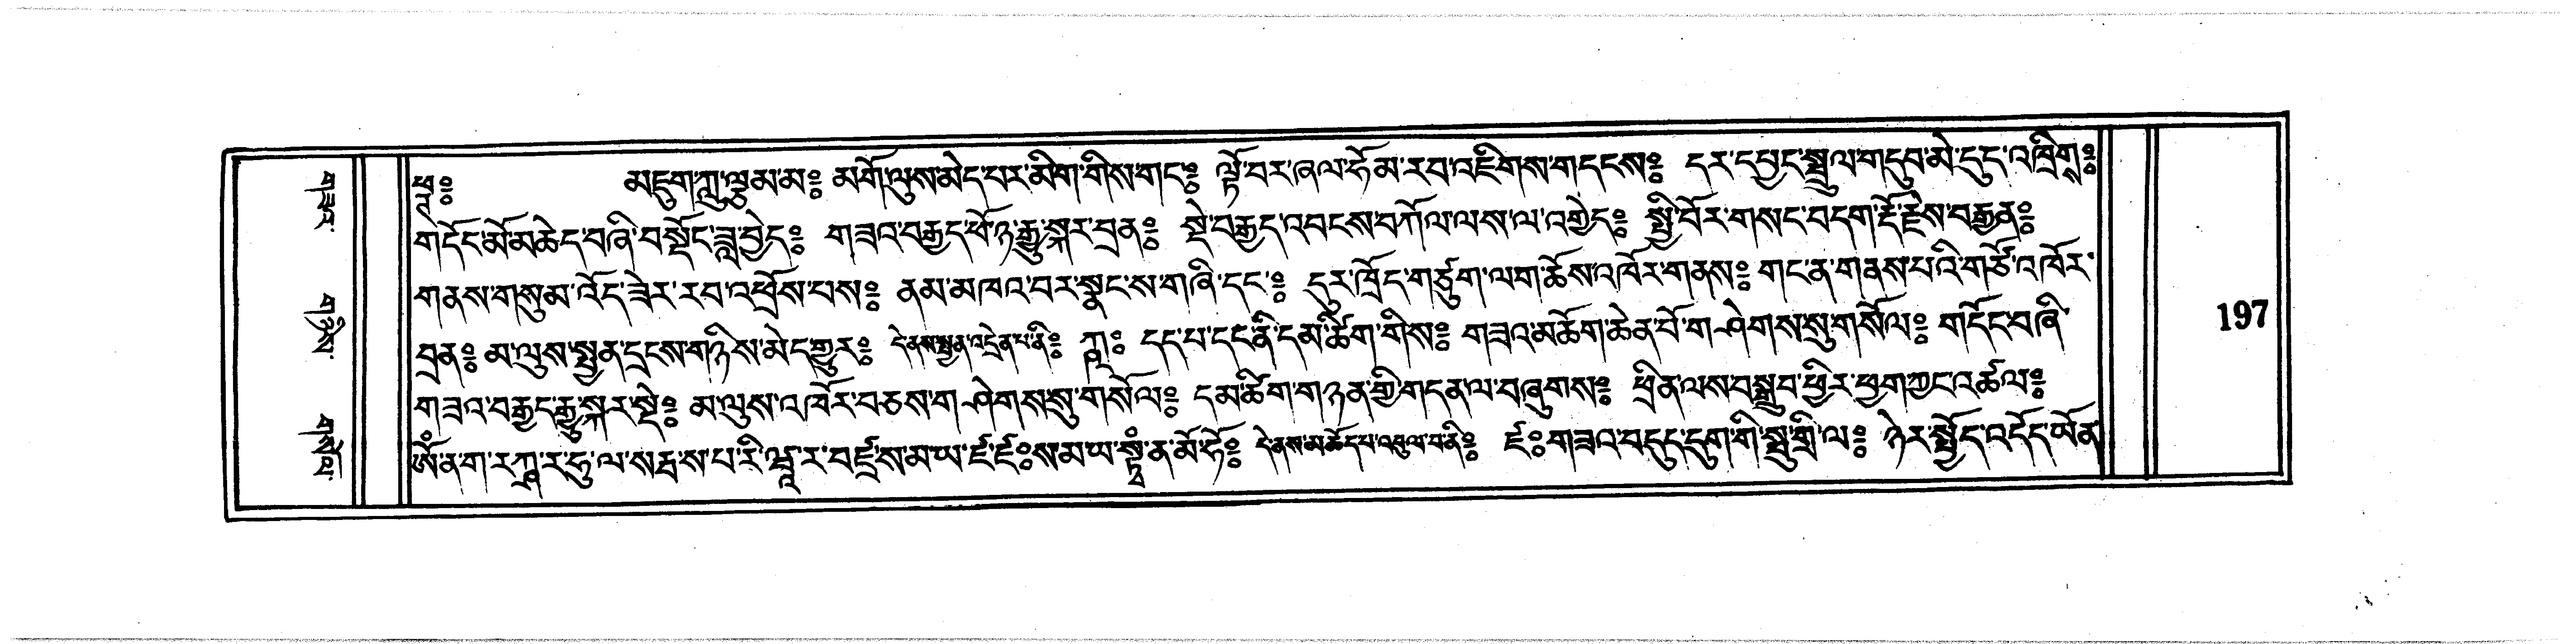 ཕྲ༔ མདུག་ཀླ་ལྕམ་མ༔ མགོ་ལུས་མེད་པར་མིག་གིས་གང༔ ལྟོ་བར་ཞལ་ཧོམ་རབ་འཇིགས་གདངས༔ དར་དཔྱང་སྦྲུལ་གདུབ་མེ་དུད་འཁྲིགས༔
གདོང་མོ་མཆེད་བཞི་བསྟོད་ཟླ་བྱེད༔ གཟའ་བརྒྱད་ཕོ་ཉ་རྒྱུ་སྐར་བྲན༔ སྡེ་བརྒྱད་འབངས་བཀོལ་ལས་ལ་འགྱེད༔ སྤྱི་བོར་གསང་བདག་རྡོ་རྗེས་བརྒྱན༔
གནས་གསུམ་འོད་ཟེར་རབ་འཕྲོས་པས༔ ནམ་མཁའ་བར་སྣང་ས་གཞི་དང༔ དུར་ཁྲོད་གཙུག་ལག་ཆོས་འཁོར་གནས༔ གང་ན་གནས་པའི་གཙོ་འཁོར་
བྲན༔ མ་ལུས་སྤྱན་དྲངས་གཉིས་མེད་གྱུར༔ དེ་ནས་སྤྱན་འདྲེན་པ་ནི༔ ཀླ༔ དད་པ་དང་ནི་དམ་ཚིག་གིས༔ གཟའ་མཆོག་ཆེན་པོ་གཤེགས་སུ་གསོལ༔ གདོང་བཞི་
གཟའ་བརྒྱད་རྒྱུ་སྐར་སྡེ༔ མ་ལུས་འཁོར་བཅས་གཤེགས་སུ་གསོལ༔ དམ་ཚིག་གཉན་གྱི་གདན་ལ་བཞུགས༔ ཕྲིན་ལས་བསྒྲུབ་ཕྱིར་ཕྱག་ཀྱང་འཚལ༔
ཨོཾ་ན་ག་རཀྴ་ར་ཧུ་ལ་སརྦ་ས་པ་རི་ཝཱ་ར་བཛྲ་ས་མ་ཡ་ཛཿ་ཛཿ༔ས་མ་ཡ་སྟྭཾ་ན་མོ་ཧོ༔ དེ་ནས་མཆོད་པ་འབུལ་བ་ནི༔ ཛཿ༔གཟའ་བདུད་དུག་གི་སྤུ་གྲི་ལ༔ ཉེར་སྤྱོད་འདོད་ཡོན
197